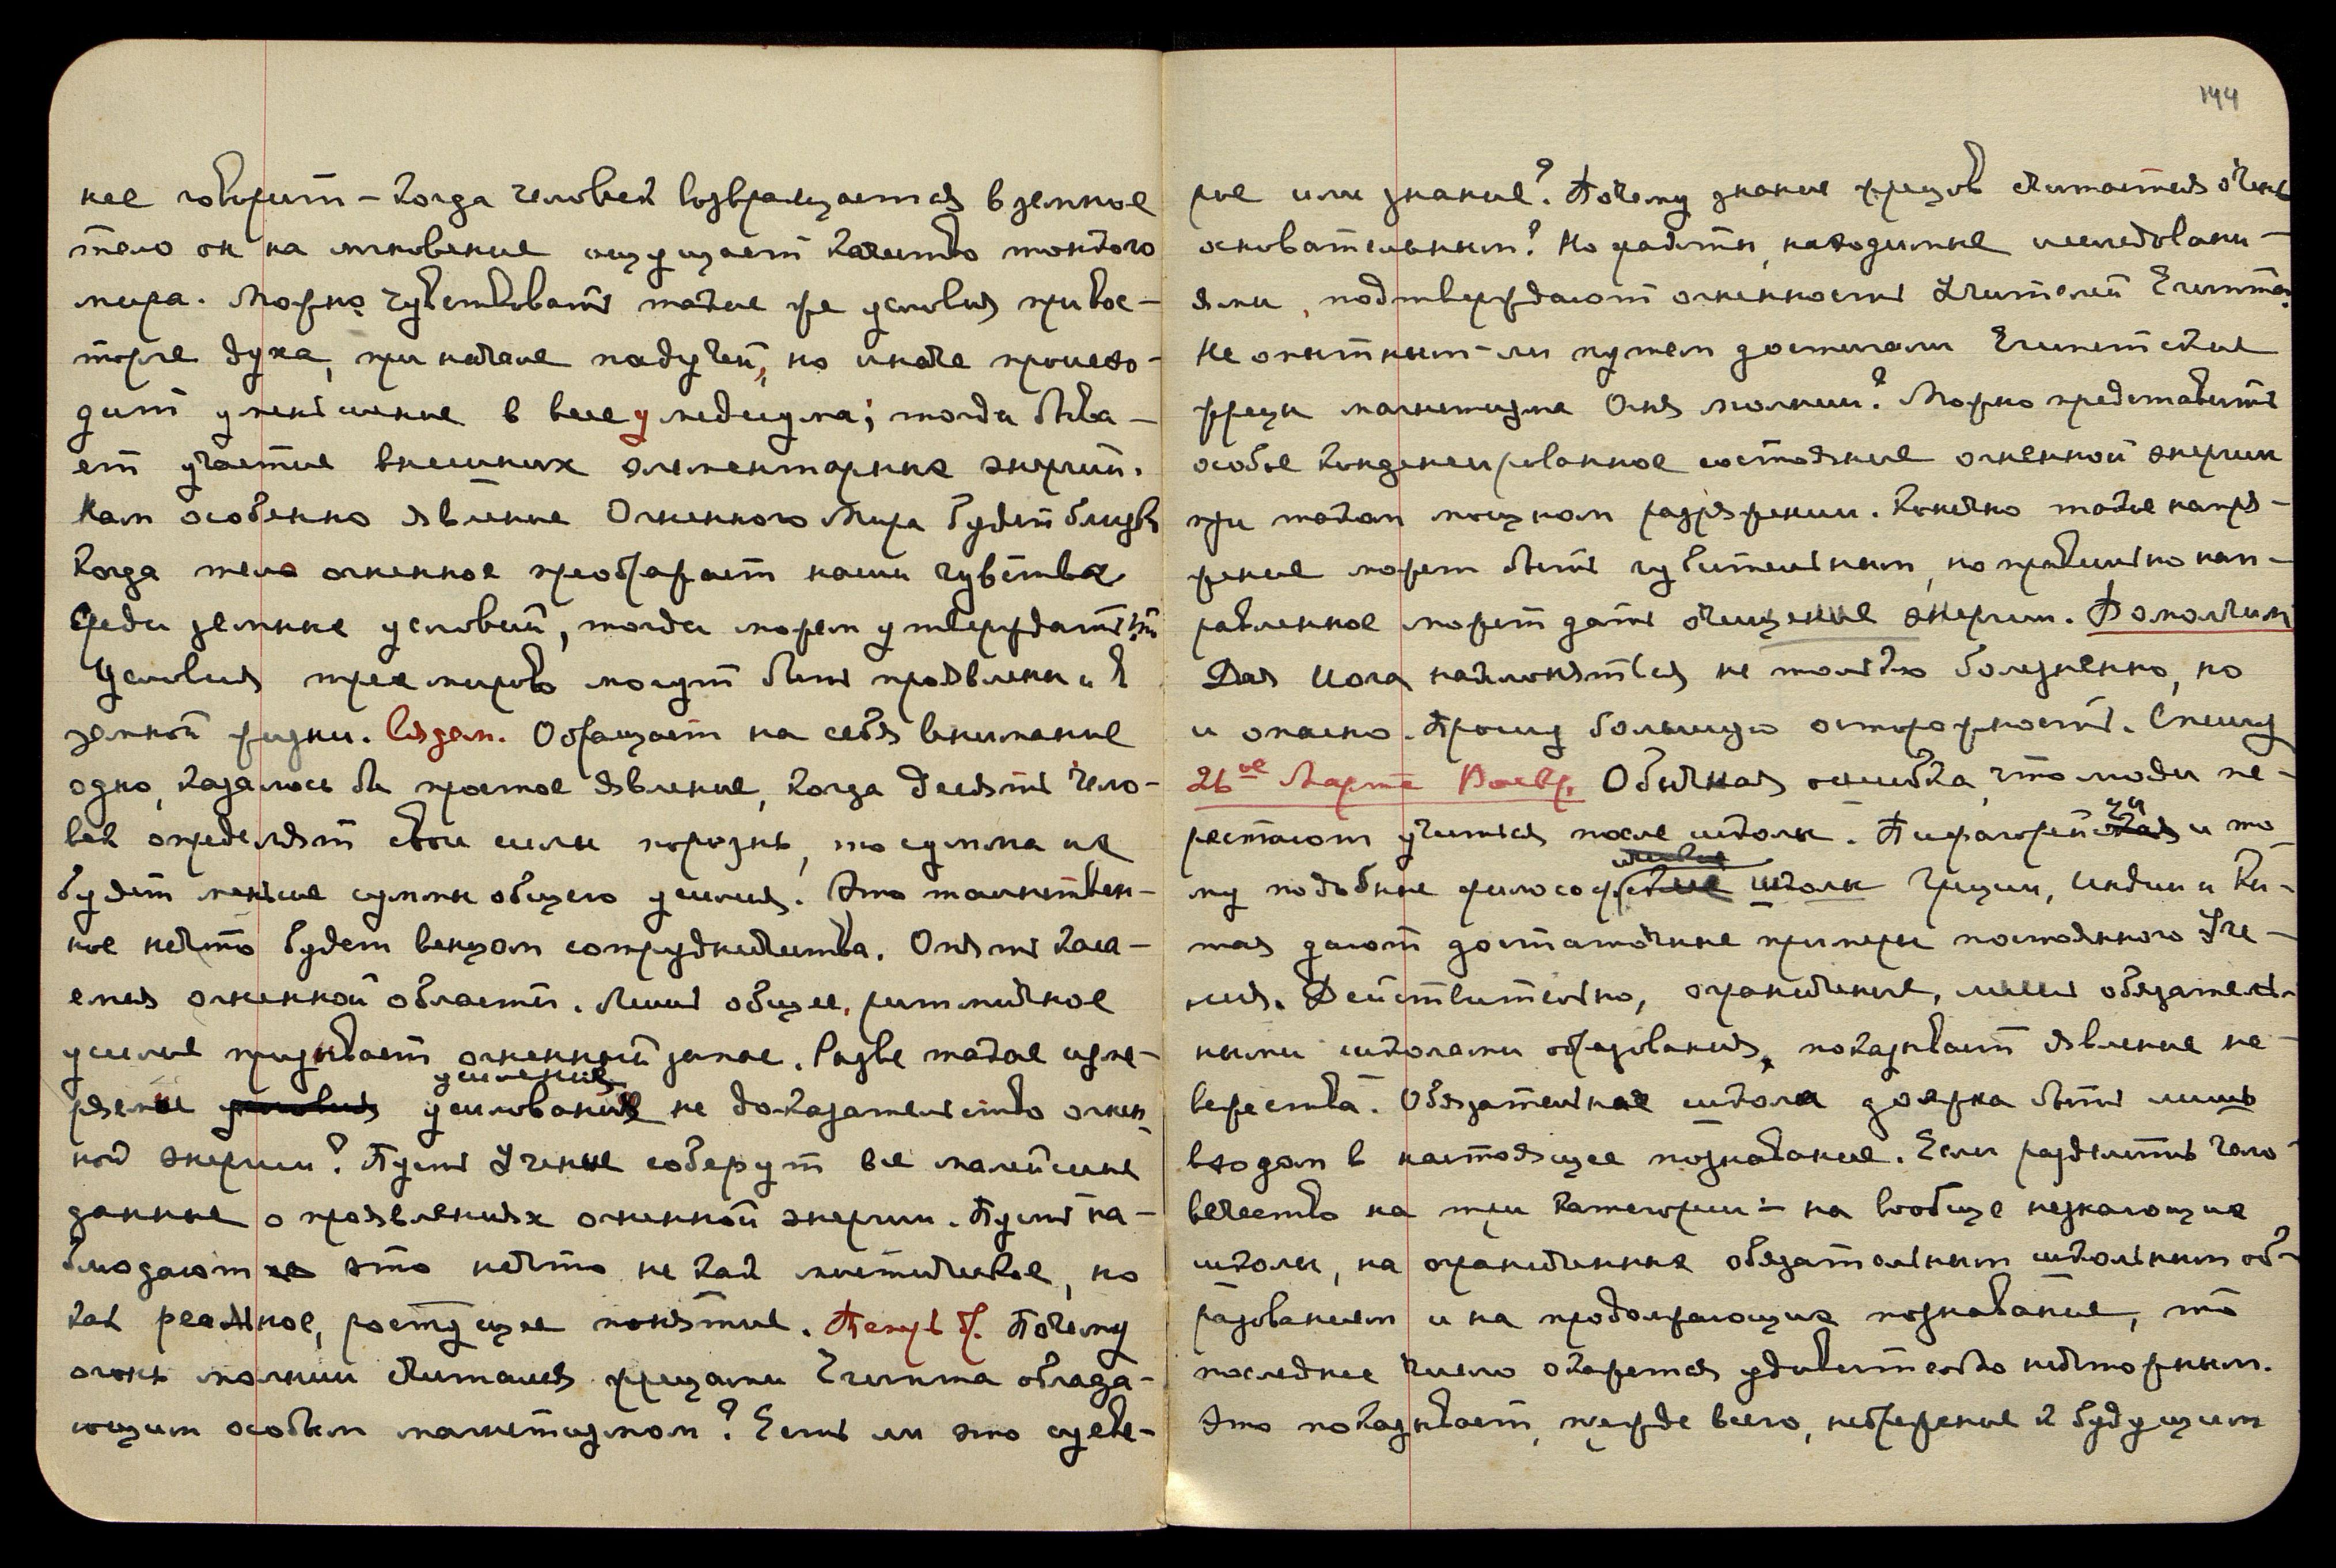 144
нее говорит – когда человек возвращается в земное
тело он на мгновение ощущает качество тонкого
мира. Можно чувствовать такие же условия при вос-
торге духа, при начале падучей, но иначе происхо-
дит уменьшение в весе у медиума; тогда быва-
ет участие внешних элементарных энергий.
Нам особенно явление Огненного Мира будет близко
когда тело огненное преображает наши чувства
среди земных условий, тогда можем утверждать, что
Условия трех миров могут быть проявлены и в
земной жизни. Создам. Обращает на себя внимание
одно, казалось бы простое явление, когда десять чело-
век определят свои силы порознь, то сумма их
будет меньше суммы общего усилия. Это таинствен-
ное нечто будет венцом сотрудничества. Опять каса-
емся огненной области. Лишь общее, ритмичное
усилие призывает огненный запас. Разве такое изме-
усиления
рение условия усилования не доказательство огнен-
ной энергии? Пусть Ученые соберут все малейшие
данные о проявлениях огненной энергии. Пусть на-
блюдают это нечто не как мистическое, но
как реальное, растущее понятие. Почему
огонь молнии считался жрецами Египта облада-
ющим особым магнетизмом? Есть ли это суеве-
рие или знание? Почему знание жрецов считается очень
основательным? Но работы, находимые исследовани-
ями, подтверждают огненность Учителей Египта.
Не опытным-ли путем достигали Египетские
жрецы магнетизма Огня молнии? Можно представить
особое конденсированное состояние огненной энергии
при таком мощном разряжении. Конечно такое напря-
жение может быть губительным, но правильно нап-
равленное может дать очищение энергии. Помолчим
Для Йога наклоняться не только болезненно, но
и опасно. Прошу большую осторожность. Спешу
26ое Марта Воскр. Обычная ошибка, что люди пе-
рестают учиться после школы. Пифагорейская и то
му подобные философские школы Греции, Индии и Ки-
тая дают достаточные примеры постоянного Уче-
ния. Действительно, ограничение, лишь обязатель-
ными школами образования, показывает явление не-
вежества. Обязательная школа должна быть лишь
входом в настоящее познавание. Если разделить чело-
вечество на три категории – на вообще незнающих
школы, на ограниченных обязательным школьным об-
разованием и на продолжающих познавание, то
последнее число окажется удивительно ничтожным.
Это показывает, прежде всего, небрежение к будущим